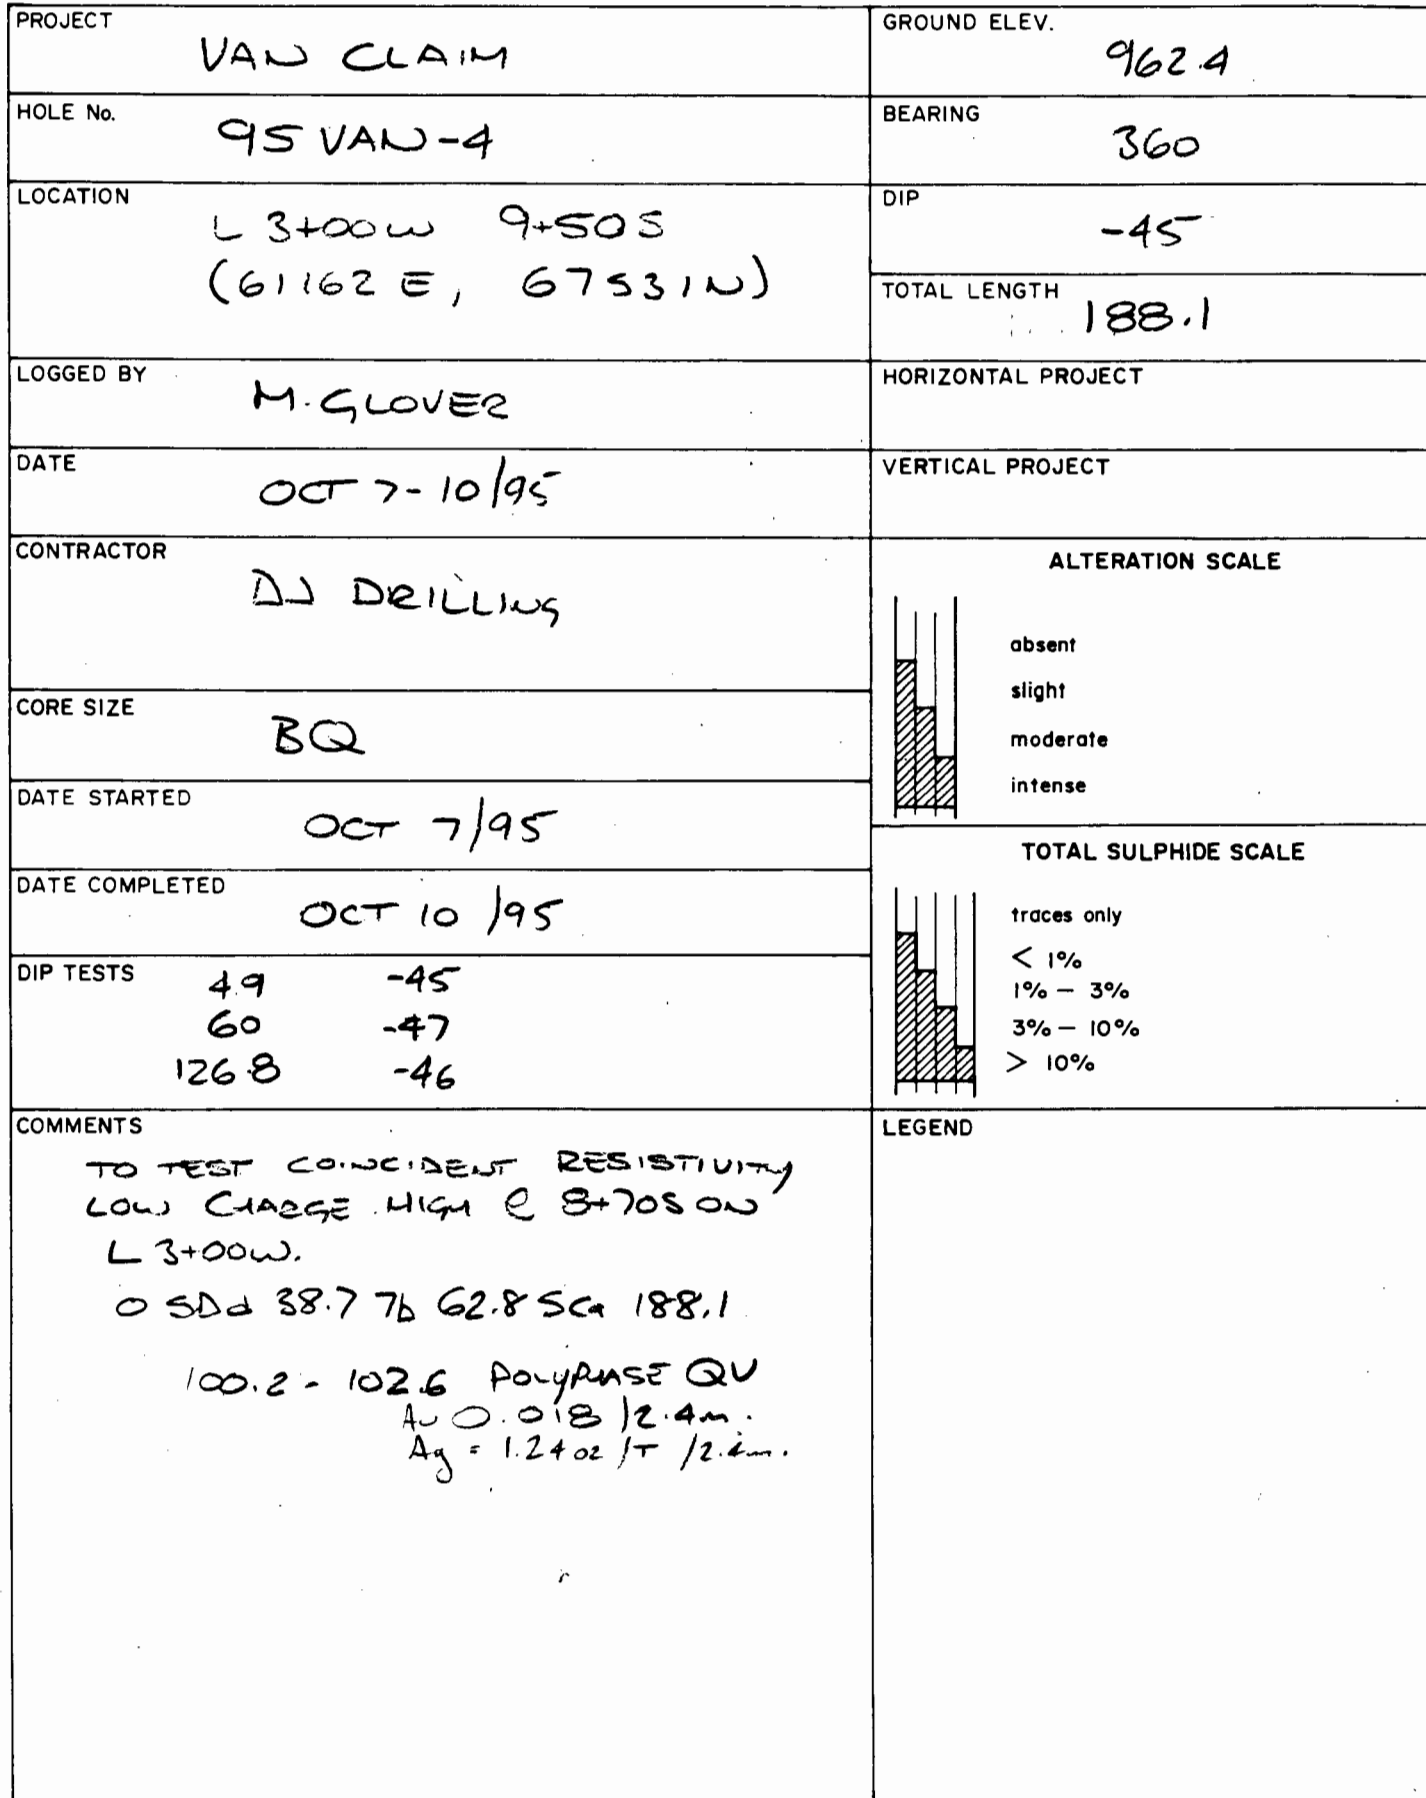 PROJECT
VAN CLAIM
HOLE No.
95 VAN-4
LOCATION
L 3+00W 9+50S
(61162 E, 67531N)
LOGGED BY
M. GLOVER
DATE
OCT 7-10/95
CONTRACTOR
DJ DRILLING
CORE SIZE
BQ
DATE STARTED
OCT 7/95
DATE COMPLETED
OCT 10 /95
DIP TESTS
4.9 -45
60 -47
126.8 -46
COMMENTS
TO TEST COINCIDENT RESISTIVITY
LOW CHARGE HIGH @ 8+70S ON
L 3+00W.
0 5Dd 38.7 7b 62.8 5Ca 188.1
100.2 - 102.6 POLYPHASE QV
Au 0.018 /2.4m.
Ag = 1.24 oz /T /2.4m.
GROUND ELEV.
962.4
BEARING
360
DIP
-45
TOTAL LENGTH
188.1
HORIZONTAL PROJECT
VERTICAL PROJECT
ALTERATION SCALE
absent
slight
moderate
intense
TOTAL SULPHIDE SCALE
traces only
< 1%
1% – 3%
3% – 10%
> 10%
LEGEND